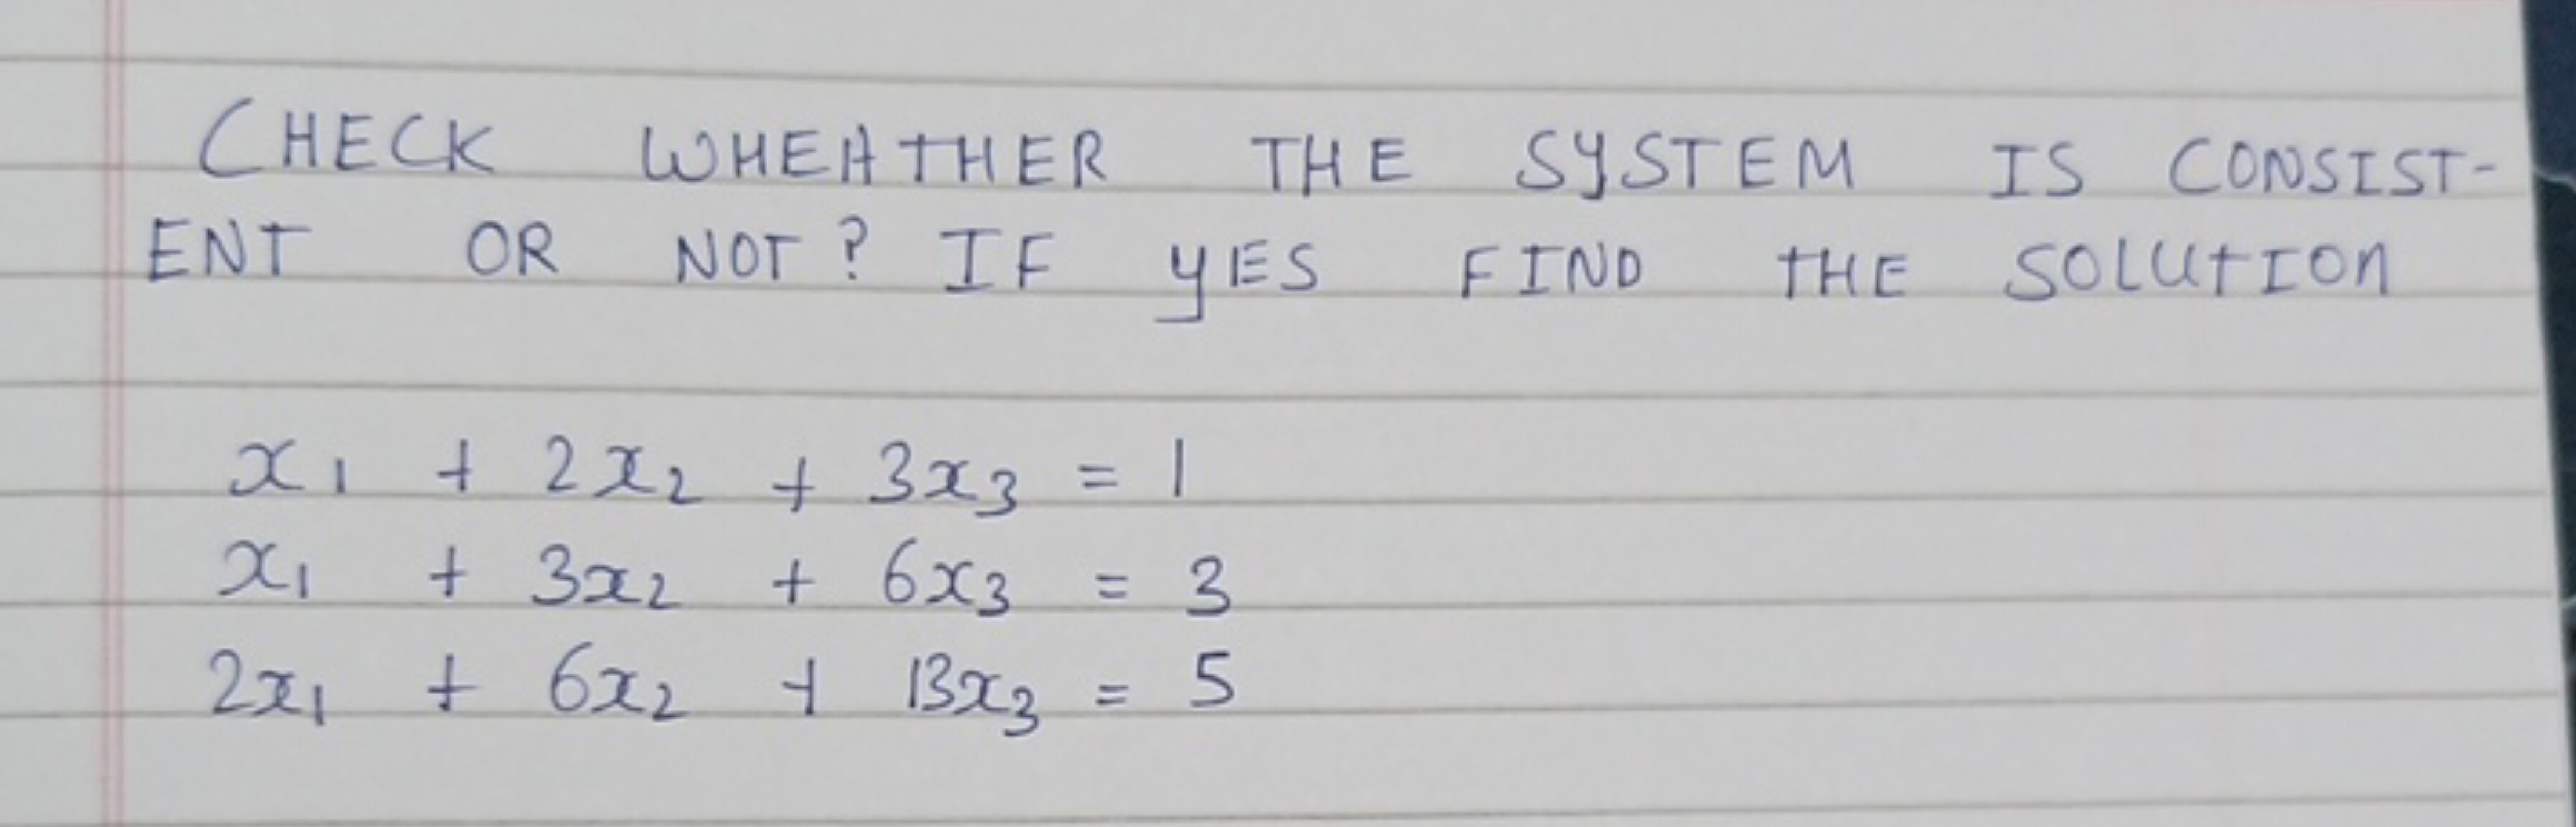 CHECK WHEATHER THE SYSTEM IS CONSIST-
ENT OR NOT? IF YES FIND THE SOLUTION
x₁ + 2x₂ + 3x₃ = 1
x₁ + 3x₂ + 6x₃ = 3
2x₁ + 6x₂ + 13x₃ = 5